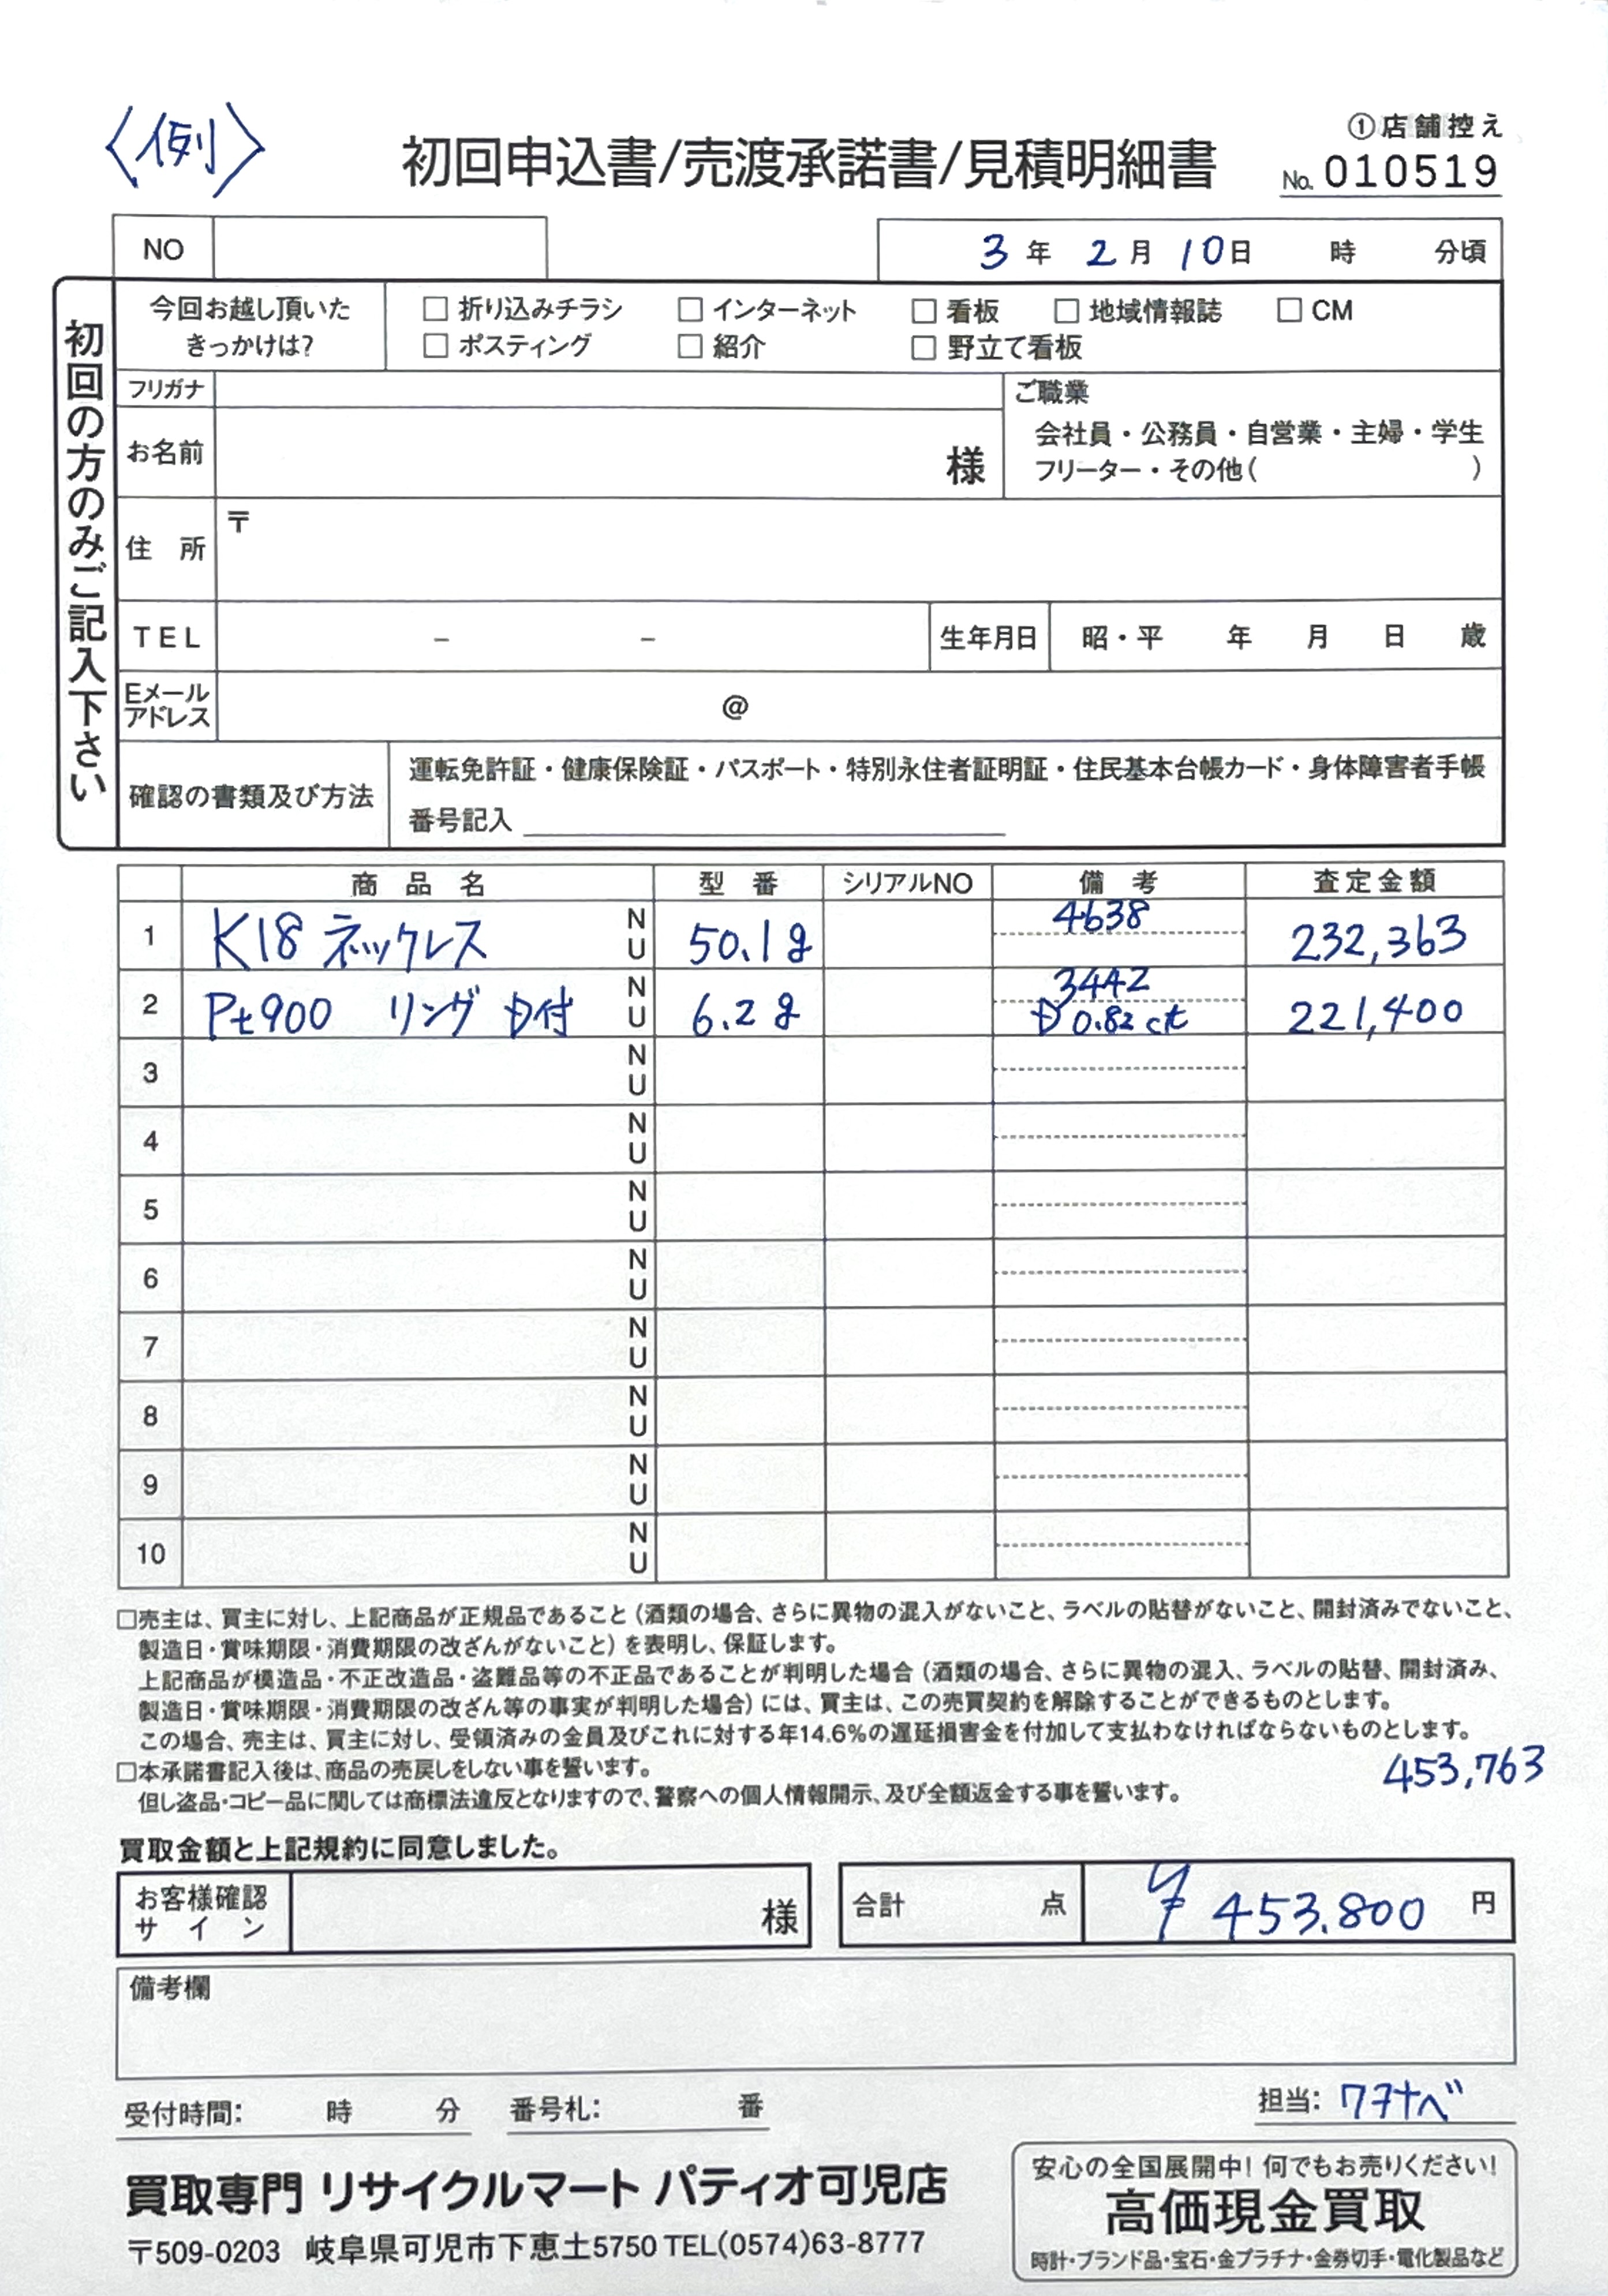 〈例〉
①店舗控え
初回申込書/売渡承諾書/見積明細書
No. 010519
NO
3年 2月 10日 時 分頃
初回の方のみご記入下さい
今回お越し頂いた
きっかけは?
□ 折り込みチラシ □ インターネット □ 看板 □ 地域情報誌 □ CM
□ ポスティング □ 紹介 □ 野立て看板
フリガナ
お名前 様
ご職業
会社員・公務員・自営業・主婦・学生
フリーター・その他( )
住 所 〒
TEL – –
生年月日 昭・平 年 月 日 歳
Eメール
アドレス @
確認の書類及び方法
運転免許証・健康保険証・パスポート・特別永住者証明証・住民基本台帳カード・身体障害者手帳
番号記入
商 品 名 型 番 シリアルNO 備 考 査定金額
1 K18 ネックレス N U 50.1g 4638 232,363
2 Pt900 リング D付 N U 6.2g 3442 D0.82ct 221,400
3 N U
4 N U
5 N U
6 N U
7 N U
8 N U
9 N U
10 N U
□売主は、買主に対し、上記商品が正規品であること(酒類の場合、さらに異物の混入がないこと、ラベルの貼替がないこと、開封済みでないこと、
製造日・賞味期限・消費期限の改ざんがないこと)を表明し、保証します。
上記商品が模造品・不正改造品・盗難品等の不正品であることが判明した場合(酒類の場合、さらに異物の混入、ラベルの貼替、開封済み、
製造日・賞味期限・消費期限の改ざん等の事実が判明した場合)には、買主は、この売買契約を解除することができるものとします。
この場合、売主は、買主に対し、受領済みの金員及びこれに対する年14.6%の遅延損害金を付加して支払わなければならないものとします。
□本承諾書記入後は、商品の売戻しをしない事を誓います。
453,763
但し盗品・コピー品に関しては商標法違反となりますので、警察への個人情報開示、及び全額返金する事を誓います。
買取金額と上記規約に同意しました。
お客様確認
サ イ ン 様
合計 点 ¥453.800 円
備考欄
受付時間: 時 分 番号札: 番
担当: ワタナベ
買取専門 リサイクルマート パティオ可児店
〒509-0203 岐阜県可児市下恵土5750 TEL(0574)63-8777
安心の全国展開中! 何でもお売りください!
高価現金買取
時計・ブランド品・宝石・金プラチナ・金券切手・電化製品など